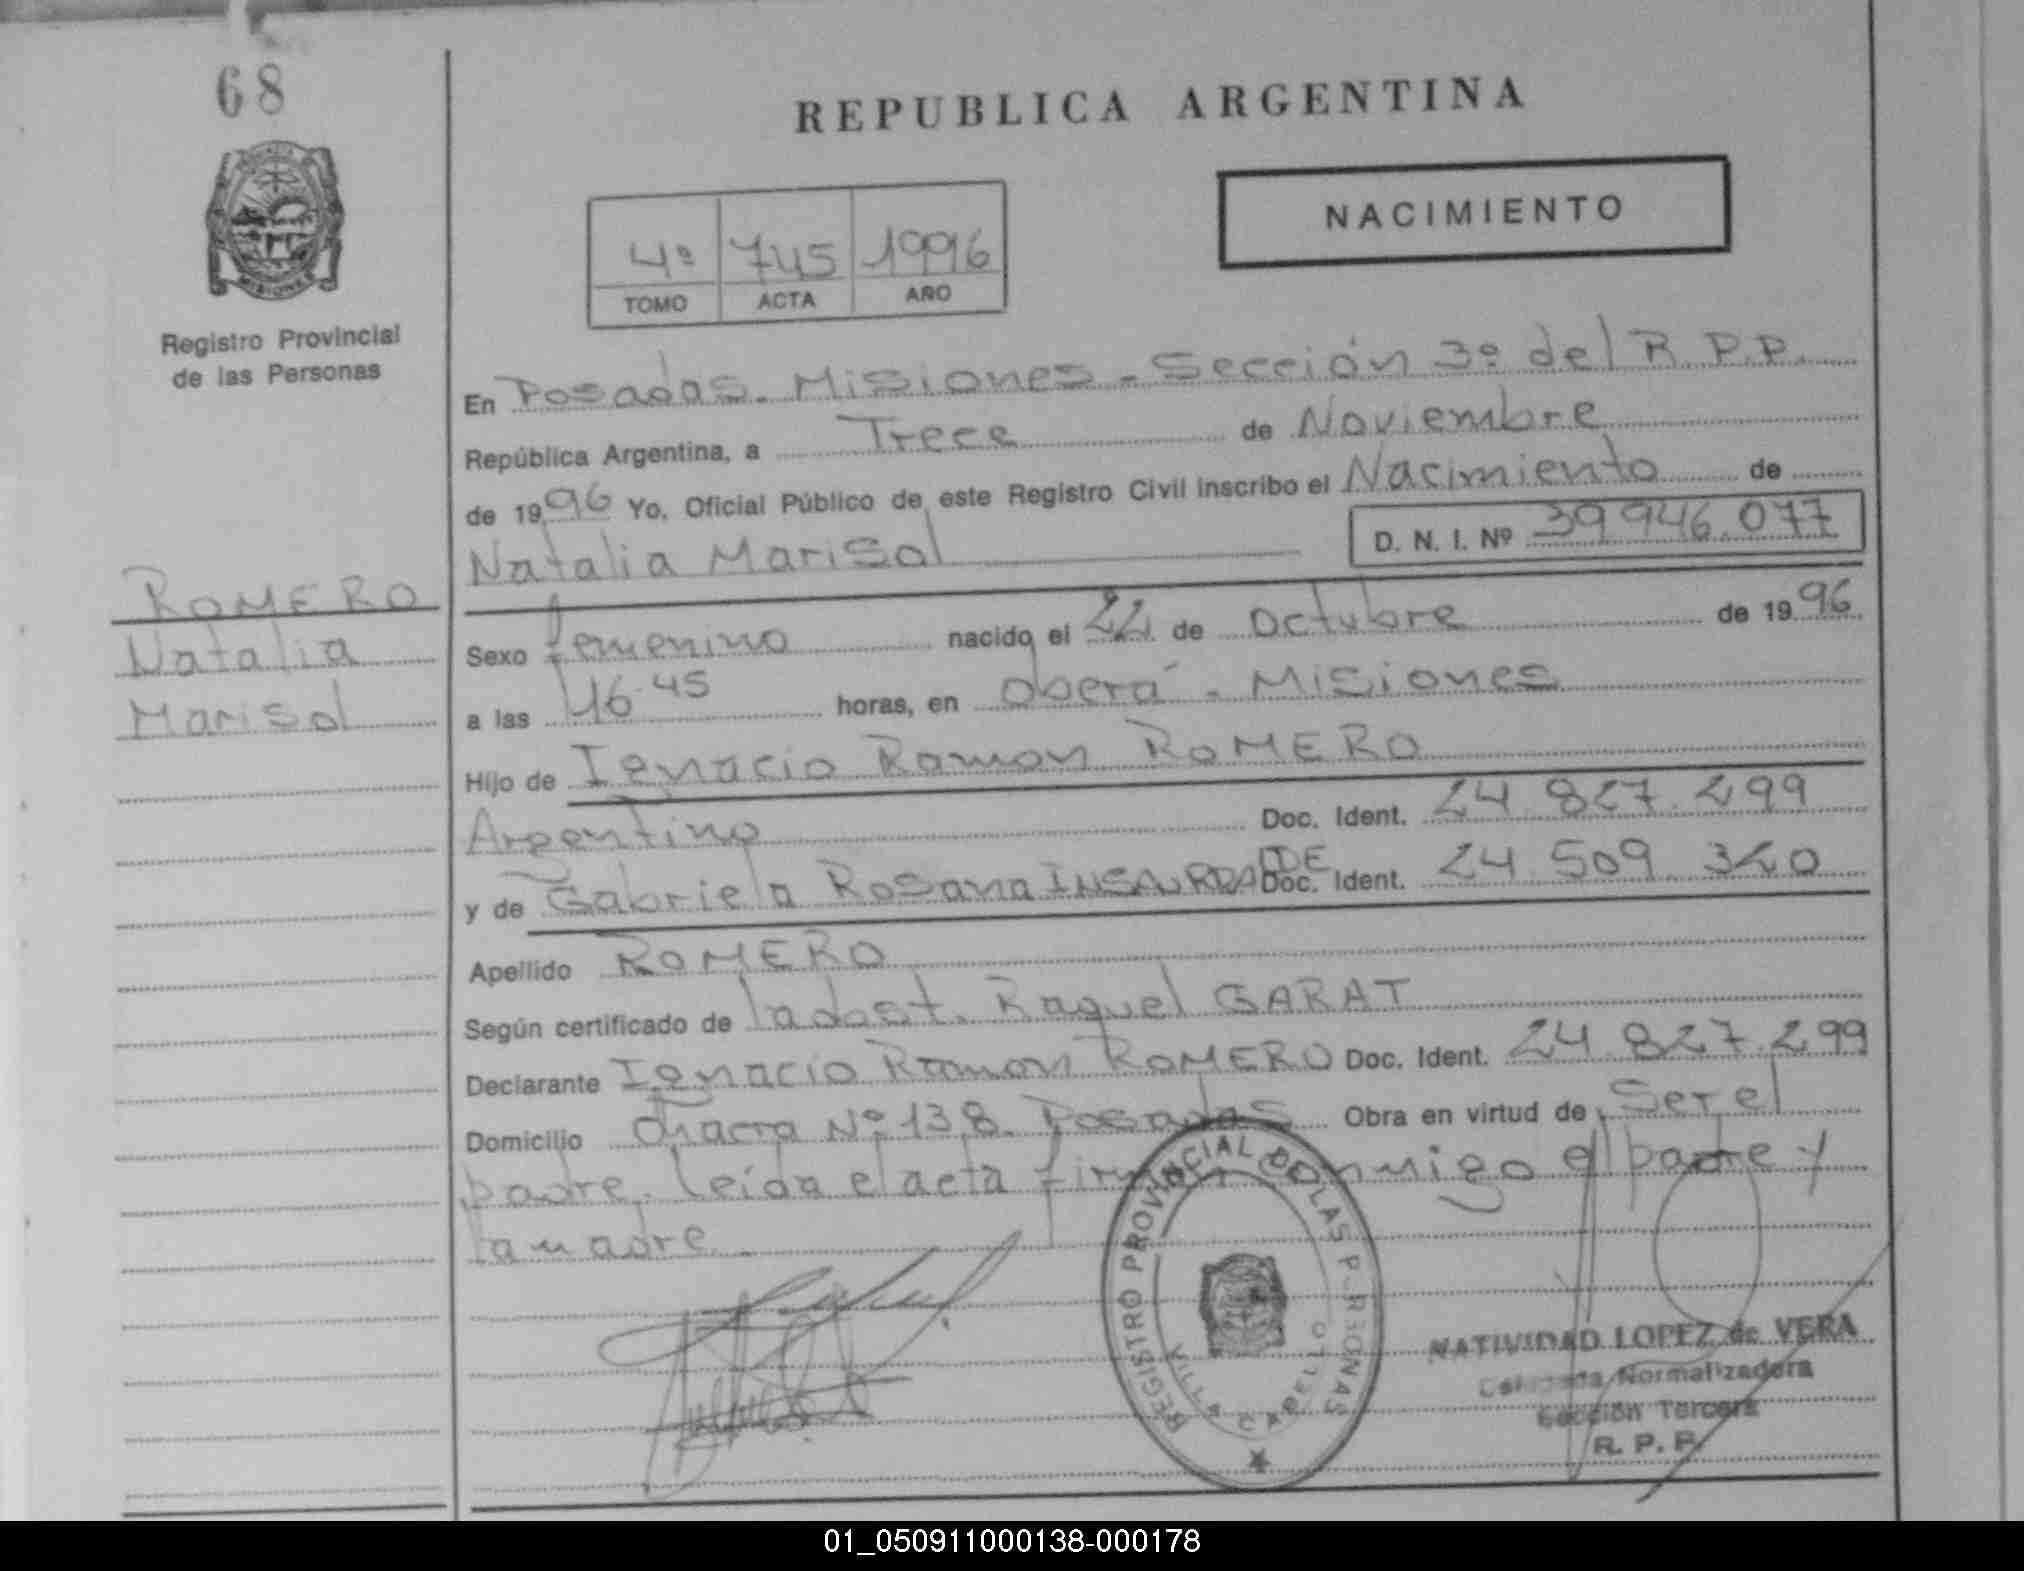 68
REPUBLICA ARGENTINA
NACIMIENTO
4º 745 1996
TOMO ACTA AÑO
MISIONES
Registro Provincial
de las Personas
En Posadas. Misiones - Sección 3º del R.P.P.
República Argentina, a Trece de Noviembre
de 1996 Yo, Oficial Público de este Registro Civil inscribo el Nacimiento de
Natalia Marisol D. N. I. Nº 39 946.077
ROMERO
Natalia
Marisol
Sexo femenino nacido el 22 de Octubre de 1996
a las 16.45 horas, en Oberá - Misiones
Hijo de Ignacio Ramon ROMERO
Argentino Doc. Ident. 24.827.299
y de Gabriela Rosana INSAURRALDE Doc. Ident. 24.509.320
Apellido ROMERO
Según certificado de la obst. Raquel GARAT
Declarante Ignacio Ramon ROMERO Doc. Ident. 24.827.299
Domicilio Chacra Nº 138. Posadas Obra en virtud de Ser el
padre. Leída el acta firman conmigo el padre y
la madre.
REGISTRO PROVINCIAL DE LAS PERSONAS
VILLA CABELLO
NATIVIDAD LOPEZ de VERA
Delegada Normalizadora
Sección Tercera
R. P. P.
01_050911000138-000178